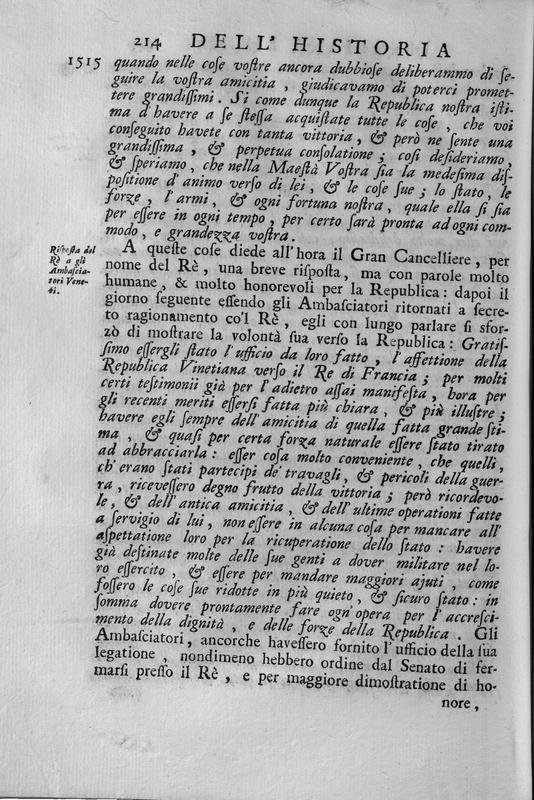 214 DELL' HISTORIA
1515 quando nelle coſe voſtre ancora dubbioſe deliberammo di ſe-
guire la voſtra amicitia, giudicavamo di poterci promet-
tere grandiſſimi. Si come dunque la Republica noſtra iſti-
ma d'havere a ſe ſteſſa acquiſtate tutte le coſe, che voi
conſeguito havete con tanta vittoria, & però ne ſente una
grandiſſima, & perpetua conſolatione; coſi deſideriamo,
& ſperiamo, che nella Maeſtà Voſtra ſia la medeſima diſ-
poſitione d'animo verſo di lei, & le coſe ſue; lo ſtato, le
forze, l'armi, & ogni fortuna noſtra, quale ella ſi ſia
per eſſere in ogni tempo, per certo ſarà pronta ad ogni com-
modo, e grandezza voſtra.
Riſpoſta del
Rè a gli
Ambaſcia-
tori Vene-
ti.
A queſte coſe diede all'hora il Gran Cancelliere, per
nome del Rè, una breve riſpoſta, ma con parole molto
humane, & molto honorevoli per la Republica: dapoi il
giorno ſeguente eſſendo gli Ambaſciatori ritornati a ſecre-
to ragionamento co'l Rè, egli con lungo parlare ſi sfor-
zò di moſtrare la volontà ſua verſo la Republica: Gratiſ-
ſimo eſſergli ſtato l'ufficio da loro fatto, l'affettione della
Republica Vinetiana verſo il Re di Francia; per molti
certi teſtimonii già per l'adietro aſſai manifeſta, hora per
gli recenti meriti eſſerſi fatta più chiara, & più illuſtre;
havere egli ſempre dell'amicitia di quella fatta grande ſti-
ma, & quaſi per certa forza naturale eſſere ſtato tirato
ad abbracciarla: eſſer coſa molto conveniente, che quelli,
ch'erano ſtati partecipi de' travagli, & pericoli della guer-
ra, riceveſſero degno frutto della vittoria; però ricordevo-
le, & dell'antica amicitia, & dell'ultime operationi fatte
a ſervigio di lui, non eſſere in alcuna coſa per mancare all'
aſpettatione loro per la ricuperatione dello ſtato: havere
già deſtinate molte delle ſue genti a dover militare nel lo-
ro eſſercito, & eſſere per mandare maggiori ajuti, come
foſſero le coſe ſue ridotte in più quieto, & ſicuro ſtato: in
ſomma dovere prontamente fare ogn'opera per l'accreſci-
mento della dignità, e delle forze della Republica. Gli
Ambaſciatori, ancorche haveſſero fornito l'ufficio della ſua
legatione, nondimeno hebbero ordine dal Senato di fer-
marſi preſſo il Rè, e per maggiore dimoſtratione di ho-
nore,